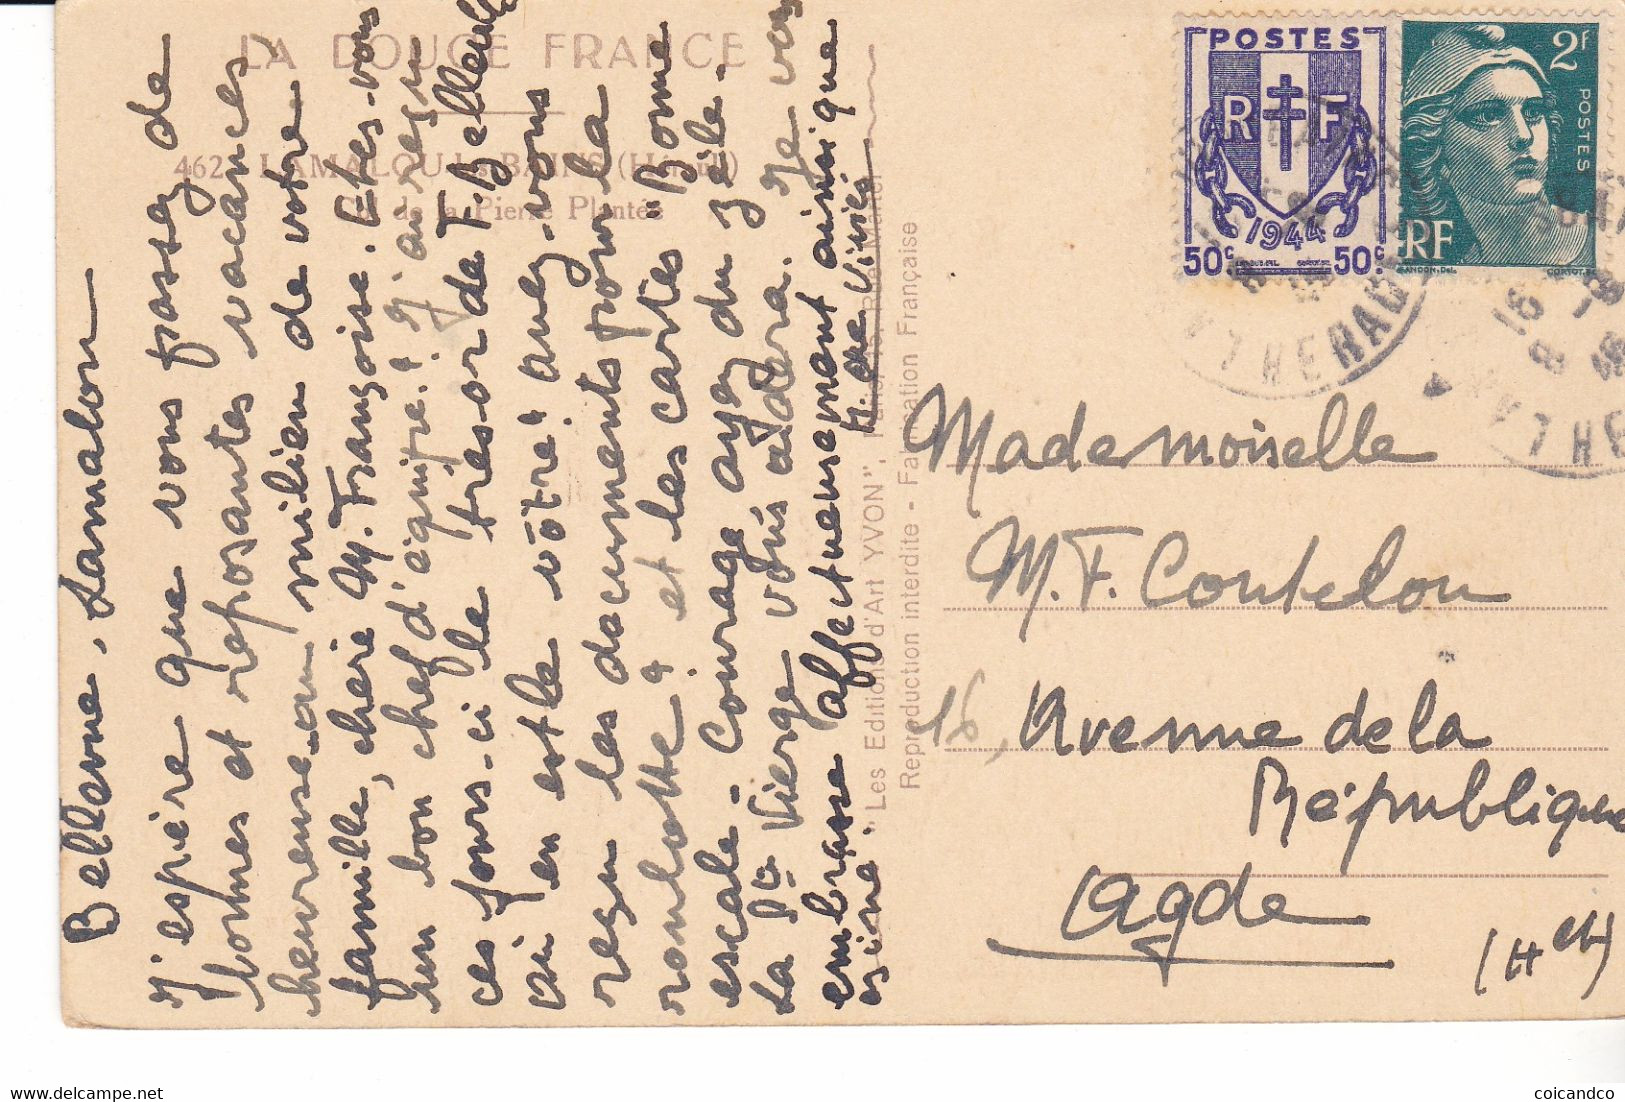 LA DOUCE FRANCE
462 LAMALOU-les-BAINS (Hérault)
Col de la Pierre Plantée
Bellevue, Lamalou
J'espère que vous passez de
bonnes et reposantes vacances
heureuse au milieu de votre
famille, chère M. Françoise. Etes-vous
un bon chef d'équipe? J'ai reçu
ces jours-ci le trésor de T.
où en est le vôtre? avez-vous
reçu les documents pour la
roulotte? et les cartes "Bonne
escale - Courage ayez du zèle -
La Ste Vierge vous aidera. Je vous
embrasse affectueusement ainsi que
"Les Editions d'Art YVON",
Reproduction interdite - Fabrication Française
POSTES
RF
1944
50c 50c
2f
POSTES
RF
GANDON, Del.
CORTOT
Mademoiselle
M. F. Coutelou
16, Avenue de la
République
Agde
(Hlt)
coicandco